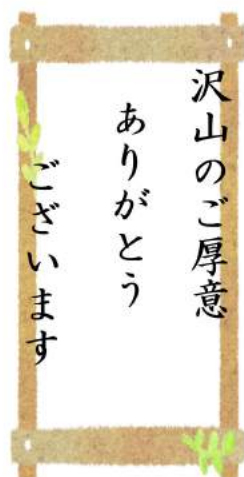 沢山のご厚意
ありがとう
ございます